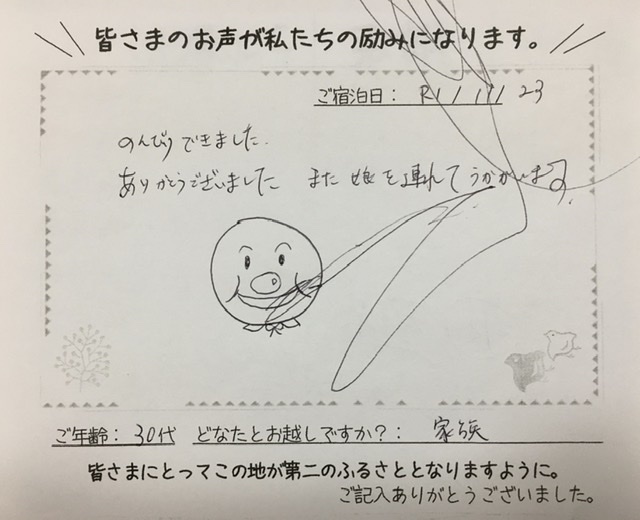 皆さまのお声が私たちの励みになります。
ご宿泊日： R1/11/23
のんびりできました.
ありがとうございました また娘を連れてうかがいます.
ご年齢：30代 どなたとお越しですか？： 家族
皆さまにとってこの地が第二のふるさととなりますように。
ご記入ありがとうございました。